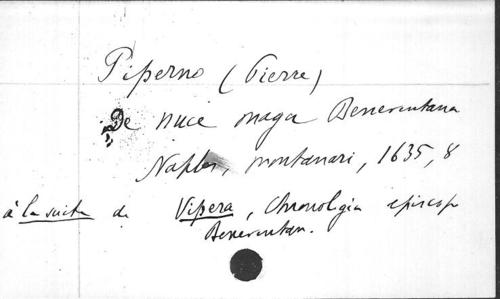 Piperno (Pierre)
De nuce maga Beneventana
Naples, montanari, 1635, 8
à la suite de Vipera, Chronologia episcop
Beneventan.